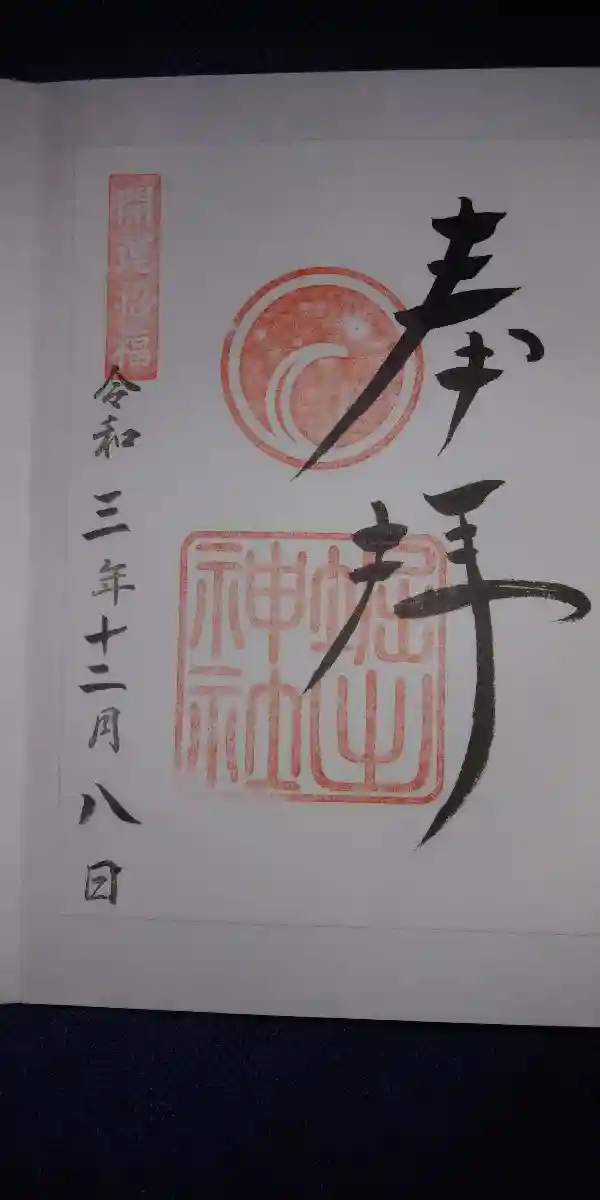 奉拝
堀出
神社
開運招福
令和三年十二月八日